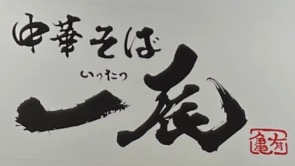 中華そば
いったつ
一辰
有亀